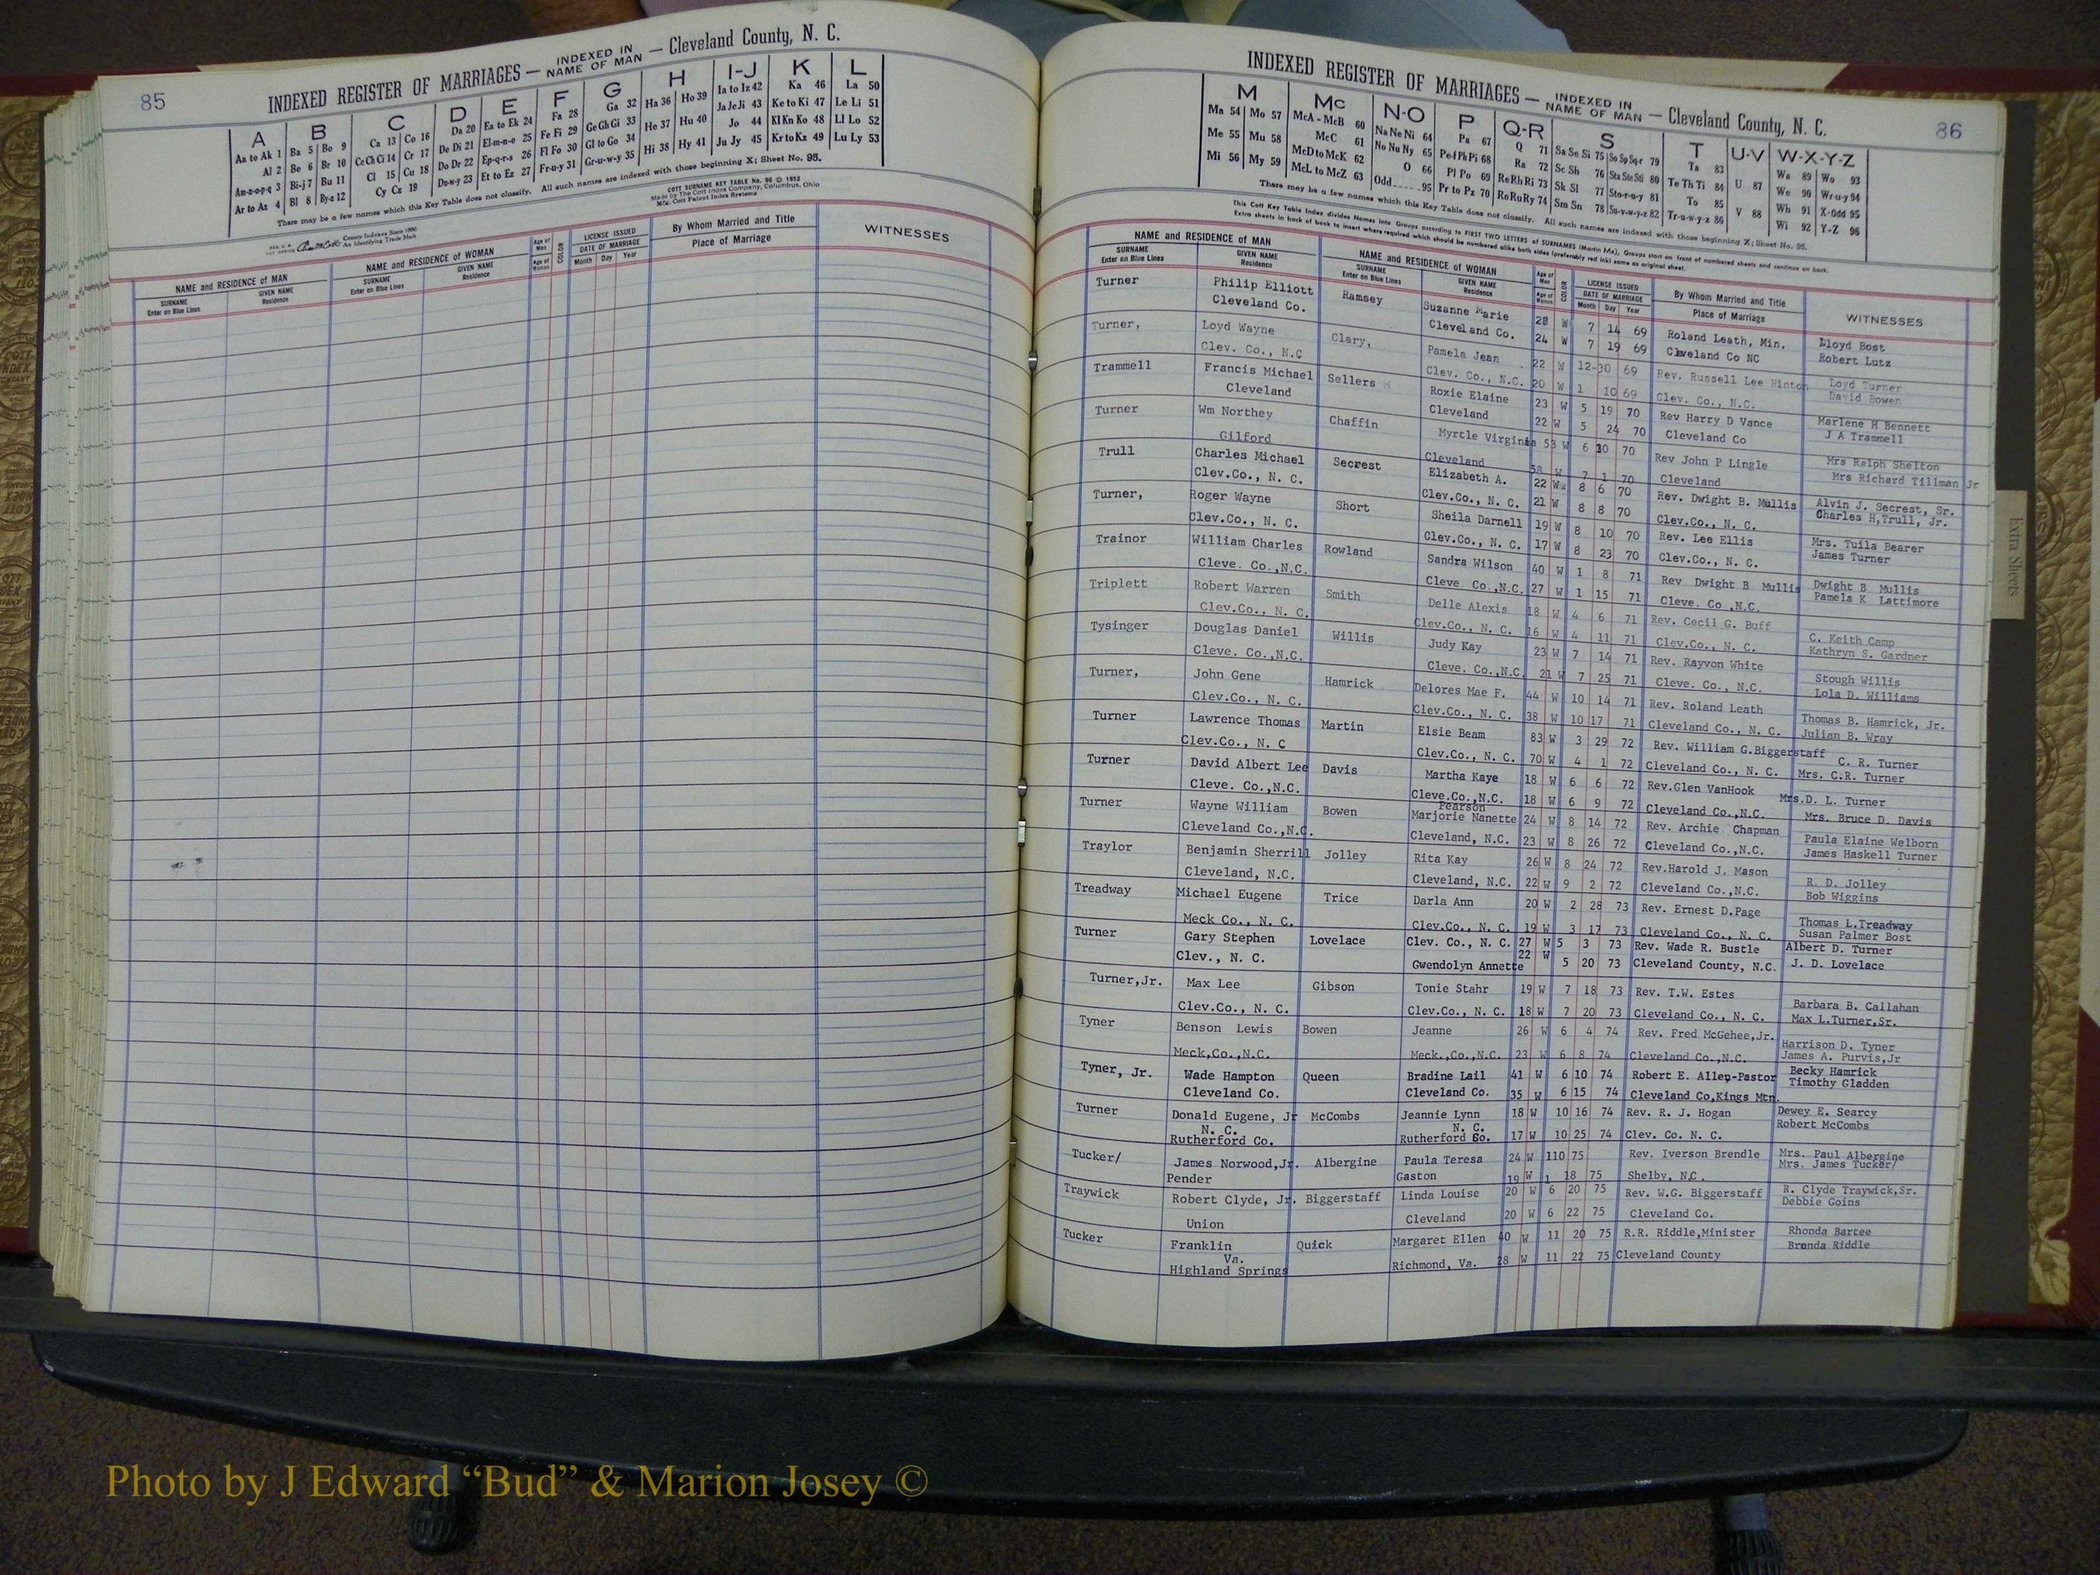 85
INDEXED REGISTER OF MARRIAGES — INDEXED IN NAME OF MAN — Cleveland County, N. C.
A B C D E F G H I-J K L
Aa to Ak 1 Ba 5 Bo 9 Ca 13 Co 16 Da 20 Ea to Ek 24 Fa 28 Ga 32 Ha 36 Ho 39 Ia to Iz 42 Ka 46 La 50
Al 2 Be 6 Br 10 Ce Ch Ci 14 Cr 17 De Di 21 El-m-n-o 25 Fe Fi 29 Ge Gh Gi 33 He 37 Hu 40 Ja Je Ji 43 Ke to Ki 47 Le Li 51
Am-n-o-p-q 3 Bi-j 7 Bu 11 Cl 15 Cu 18 Do Dr 22 Ep-q-r-s 26 Fl Fo 30 Gl to Go 34 Hi 38 Hy 41 Jo 44 Kl Kn Ko 48 Ll Lo 52
Ar to Az 4 Bl 8 By-z 12 Cy Cz 19 Du-w-y 23 Et to Ez 27 Fr-u-y 31 Gr-u-w-y 35 Ju Jy 45 Kr to Kz 49 Lu Ly 53
There may be a few names which this Key Table does not classify. All such names are indexed with those beginning X; Sheet No. 95.
COTT SURNAME KEY TABLE No. 96 © 1952
Made by The Cott Index Company, Columbus, Ohio
Mfg. Cott Patent Index Systems
County Indexes Since 1888
An Identifying Trade Mark
NAME and RESIDENCE of MAN NAME and RESIDENCE of WOMAN Age of Man Age of Woman COLOR LICENSE ISSUED DATE OF MARRIAGE Month Day Year By Whom Married and Title Place of Marriage WITNESSES
SURNAME Enter on Blue Lines GIVEN NAME Residence SURNAME Enter on Blue Lines GIVEN NAME Residence
86
INDEXED REGISTER OF MARRIAGES — INDEXED IN NAME OF MAN — Cleveland County, N. C.
M Mc N-O P Q-R S T U-V W-X-Y-Z
Ma 54 Mo 57 McA - McB 60 Na Ne Ni 64 Pa 67 Q 71 Sa Se Si 75 So Sp Sq-r 79 Ta 83 U 87 Wa 89 Wo 93
Me 55 Mu 58 McC 61 No Nu Ny 65 Pe-f Ph Pi 68 Ra 72 Sc Sh 76 Sta Ste Sti 80 Te Th Ti 84 V 88 We 90 Wr-u-y 94
Mi 56 My 59 McD to McK 62 O 66 Pl Po 69 Re Rh Ri 73 Sk Sl 77 Sto-r-u-y 81 To 85 Wh 91 X-Odd 95
McL to McZ 63 Odd 95 Pr to Pz 70 Ro Ru Ry 74 Sm Sn 78 Su-v-w-y-z 82 Tr-u-w-y-z 86 Wi 92 Y-Z 96
There may be a few names which this Key Table does not classify. All such names are indexed with those beginning X; Sheet No. 95.
This Cott Key Table Index divides Names into Groups according to FIRST TWO LETTERS of SURNAMES (Martin Ma), Groups start on front of numbered sheets and continue on back.
Extra sheets in back of book to insert where required which should be numbered alike both sides (preferably red ink) same as original sheet.
NAME and RESIDENCE of MAN NAME and RESIDENCE of WOMAN Age of Man Age of Woman COLOR LICENSE ISSUED DATE OF MARRIAGE Month Day Year By Whom Married and Title Place of Marriage WITNESSES
SURNAME Enter on Blue Lines GIVEN NAME Residence SURNAME Enter on Blue Lines GIVEN NAME Residence
Turner Philip Elliott Ramsey Suzanne Marie W 7 14 69 Roland Leath, Min. Lloyd Bost
Cleveland Co. Cleveland Co. 24 W 7 19 69 Cleveland Co NC Robert Lutz
Turner, Loyd Wayne Clary, Pamela Jean 22 W 12-30 69 Rev. Russell Lee Hinton Loyd Turner
Clev. Co., N.C Clev. Co., N.C. 20 W 1 10 69 Clev. Co., N.C. David Bowen
Trammell Francis Michael Sellers Roxie Elaine 23 W 5 19 70 Rev Harry D Vance Marlene H Bennett
Cleveland Cleveland 22 W 5 24 70 Cleveland Co J A Trammell
Turner Wm Northey Chaffin Myrtle Virginia 53 W 6 30 70 Rev John P Lingle Mrs Ralph Shelton
Gilford Cleveland 58 W 7 1 70 Cleveland Mrs Richard Tillman Jr
Trull Charles Michael Secrest Elizabeth A. 22 W 8 6 70 Rev. Dwight B. Mullis Alvin J. Secrest, Sr.
Clev.Co., N. C. Clev.Co., N. C. 21 W 8 8 70 Clev.Co., N. C. Charles H,Trull, Jr.
Turner, Roger Wayne Short Sheila Darnell 19 W 8 10 70 Rev. Lee Ellis Mrs. Tuila Bearer
Clev.Co., N. C. Clev.Co., N. C. 17 W 8 23 70 Clev.Co., N. C. James Turner
Trainor William Charles Rowland Sandra Wilson 40 W 1 8 71 Rev Dwight B Mullis Dwight B Mullis
Cleve. Co.,N.C. Cleve Co.,N.C. 27 W 1 15 71 Cleve. Co.,N.C. Pamela K Lattimore
Triplett Robert Warren Smith Delle Alexis 18 W 4 6 71 Rev. Cecil G. Buff C. Keith Camp
Clev.Co., N. C. Clev.Co., N. C. 16 W 4 11 71 Clev.Co., N. C. Kathryn S. Gardner
Tysinger Douglas Daniel Willis Judy Kay 23 W 7 14 71 Rev. Rayvon White Stough Willis
Cleve. Co.,N.C. Cleve. Co.,N.C. 21 W 7 25 71 Cleve. Co., N.C. Lola D. Williams
Turner, John Gene Hamrick Delores Mae F. 44 W 10 14 71 Rev. Roland Leath Thomas B. Hamrick, Jr.
Clev.Co., N. C. Clev.Co., N. C. 38 W 10 17 71 Cleveland Co., N. C. Julian B. Wray
Turner Lawrence Thomas Martin Elsie Beam 83 W 3 29 72 Rev. William G.Biggerstaff C. R. Turner
Clev.Co., N. C Clev.Co., N. C. 70 W 4 1 72 Cleveland Co., N. C. Mrs. C.R. Turner
Turner David Albert Lee Davis Martha Kaye 18 W 6 6 72 Rev.Glen VanHook Mrs.D. L. Turner
Cleve. Co.,N.C. Cleve.Co.,N.C. 18 W 6 9 72 Cleveland Co.,N.C. Mrs. Bruce D. Davis
Turner Wayne William Bowen Pearson Marjorie Nanette 24 W 8 14 72 Rev. Archie Chapman Paula Elaine Welborn
Cleveland Co.,N.C. Cleveland, N.C. 23 W 8 26 72 Cleveland Co.,N.C. James Haskell Turner
Traylor Benjamin Sherrill Jolley Rita Kay 26 W 8 24 72 Rev.Harold J. Mason R. D. Jolley
Cleveland, N.C. Cleveland, N.C. 22 W 9 2 72 Cleveland Co.,N.C. Bob Wiggins
Treadway Michael Eugene Trice Darla Ann 20 W 2 28 73 Rev. Ernest D.Page Thomas L.Treadway
Meck Co., N. C. Clev.Co., N. C. 19 W 3 17 73 Cleveland Co., N. C. Susan Palmer Bost
Turner Gary Stephen Lovelace Clev. Co., N. C. 27 W 5 3 73 Rev. Wade R. Bustle Albert D. Turner
Clev., N. C. Gwendolyn Annette 22 W 5 20 73 Cleveland County, N.C. J. D. Lovelace
Turner,Jr. Max Lee Gibson Tonie Stahr 19 W 7 18 73 Rev. T.W. Estes Barbara B. Callahan
Clev.Co., N. C. Clev.Co., N. C. 18 W 7 20 73 Cleveland Co., N. C. Max L.Turner,Sr.
Tyner Benson Lewis Bowen Jeanne 26 W 6 4 74 Rev. Fred McGehee,Jr. Harrison D. Tyner
Meck,Co.,N.C. Meck.,Co.,N.C. 23 W 6 8 74 Cleveland Co.,N.C. James A. Purvis,Jr
Tyner, Jr. Wade Hampton Queen Bradine Lail 41 W 6 10 74 Robert E. Allen-Pastor Becky Hamrick
Cleveland Co. Cleveland Co. 35 W 6 15 74 Cleveland Co,Kings Mtn. Timothy Gladden
Turner Donald Eugene, Jr McCombs Jeannie Lynn 18 W 10 16 74 Rev. R. J. Hogan Dewey E. Searcy
N. C. Rutherford Co. N. C. Rutherford Co. 17 W 10 25 74 Clev. Co. N. C. Robert McCombs
Tucker/ James Norwood,Jr. Albergine Paula Teresa 24 W 110 75 Rev. Iverson Brendle Mrs. Paul Albergine
Pender Gaston 19 W 1 18 75 Shelby, N.C. Mrs. James Tucker/
Traywick Robert Clyde, Jr. Biggerstaff Linda Louise 20 W 6 20 75 Rev. W.G. Biggerstaff R. Clyde Traywick,Sr.
Union Cleveland 20 W 6 22 75 Cleveland Co. Debbie Goins
Tucker Franklin Quick Margaret Ellen 40 W 11 20 75 R.R. Riddle,Minister Rhonda Bartee
Va. Highland Springs Richmond, Va. 28 W 11 22 75 Cleveland County Brenda Riddle
Extra Sheets
Photo by J Edward “Bud” & Marion Josey ©